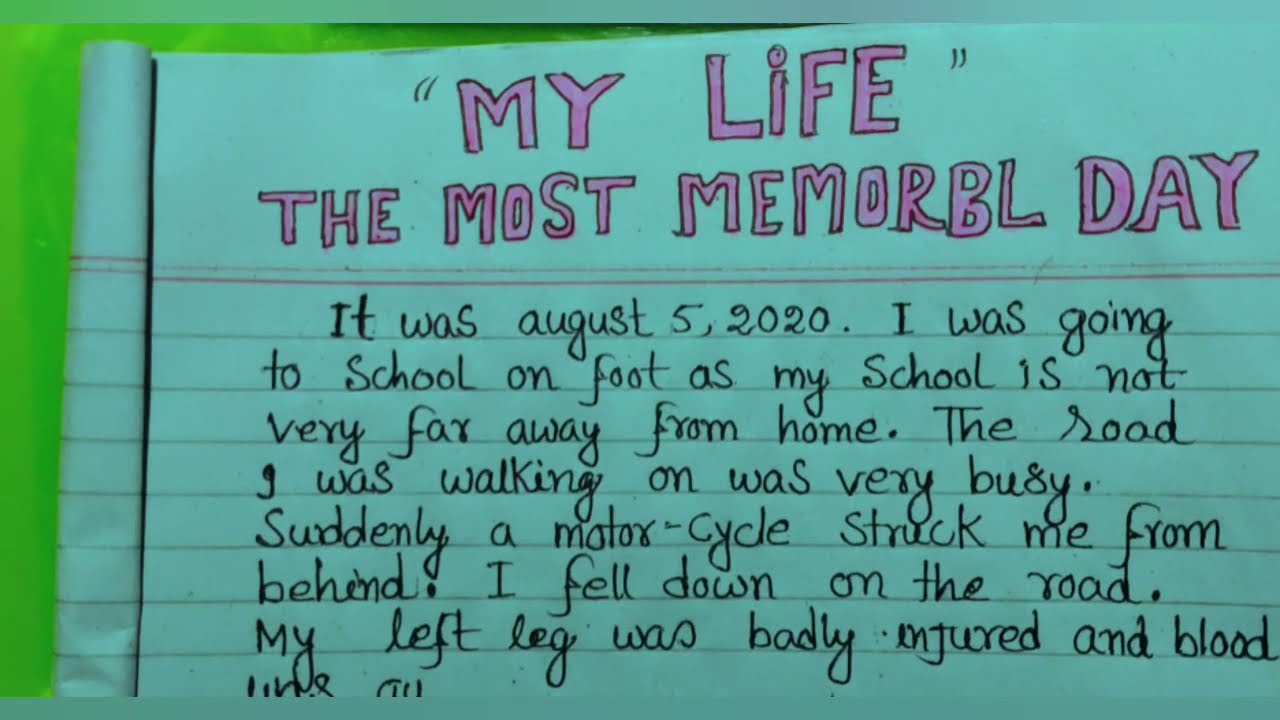 "MY LiFE"
THE MOST MEMORBL DAY
It was august 5, 2020. I was going
to School on foot as my School is not
very far away from home. The road
I was walking on was very busy.
Suddenly a motor-cycle struck me from
behind. I fell down on the road.
My left leg was badly injured and blood
was